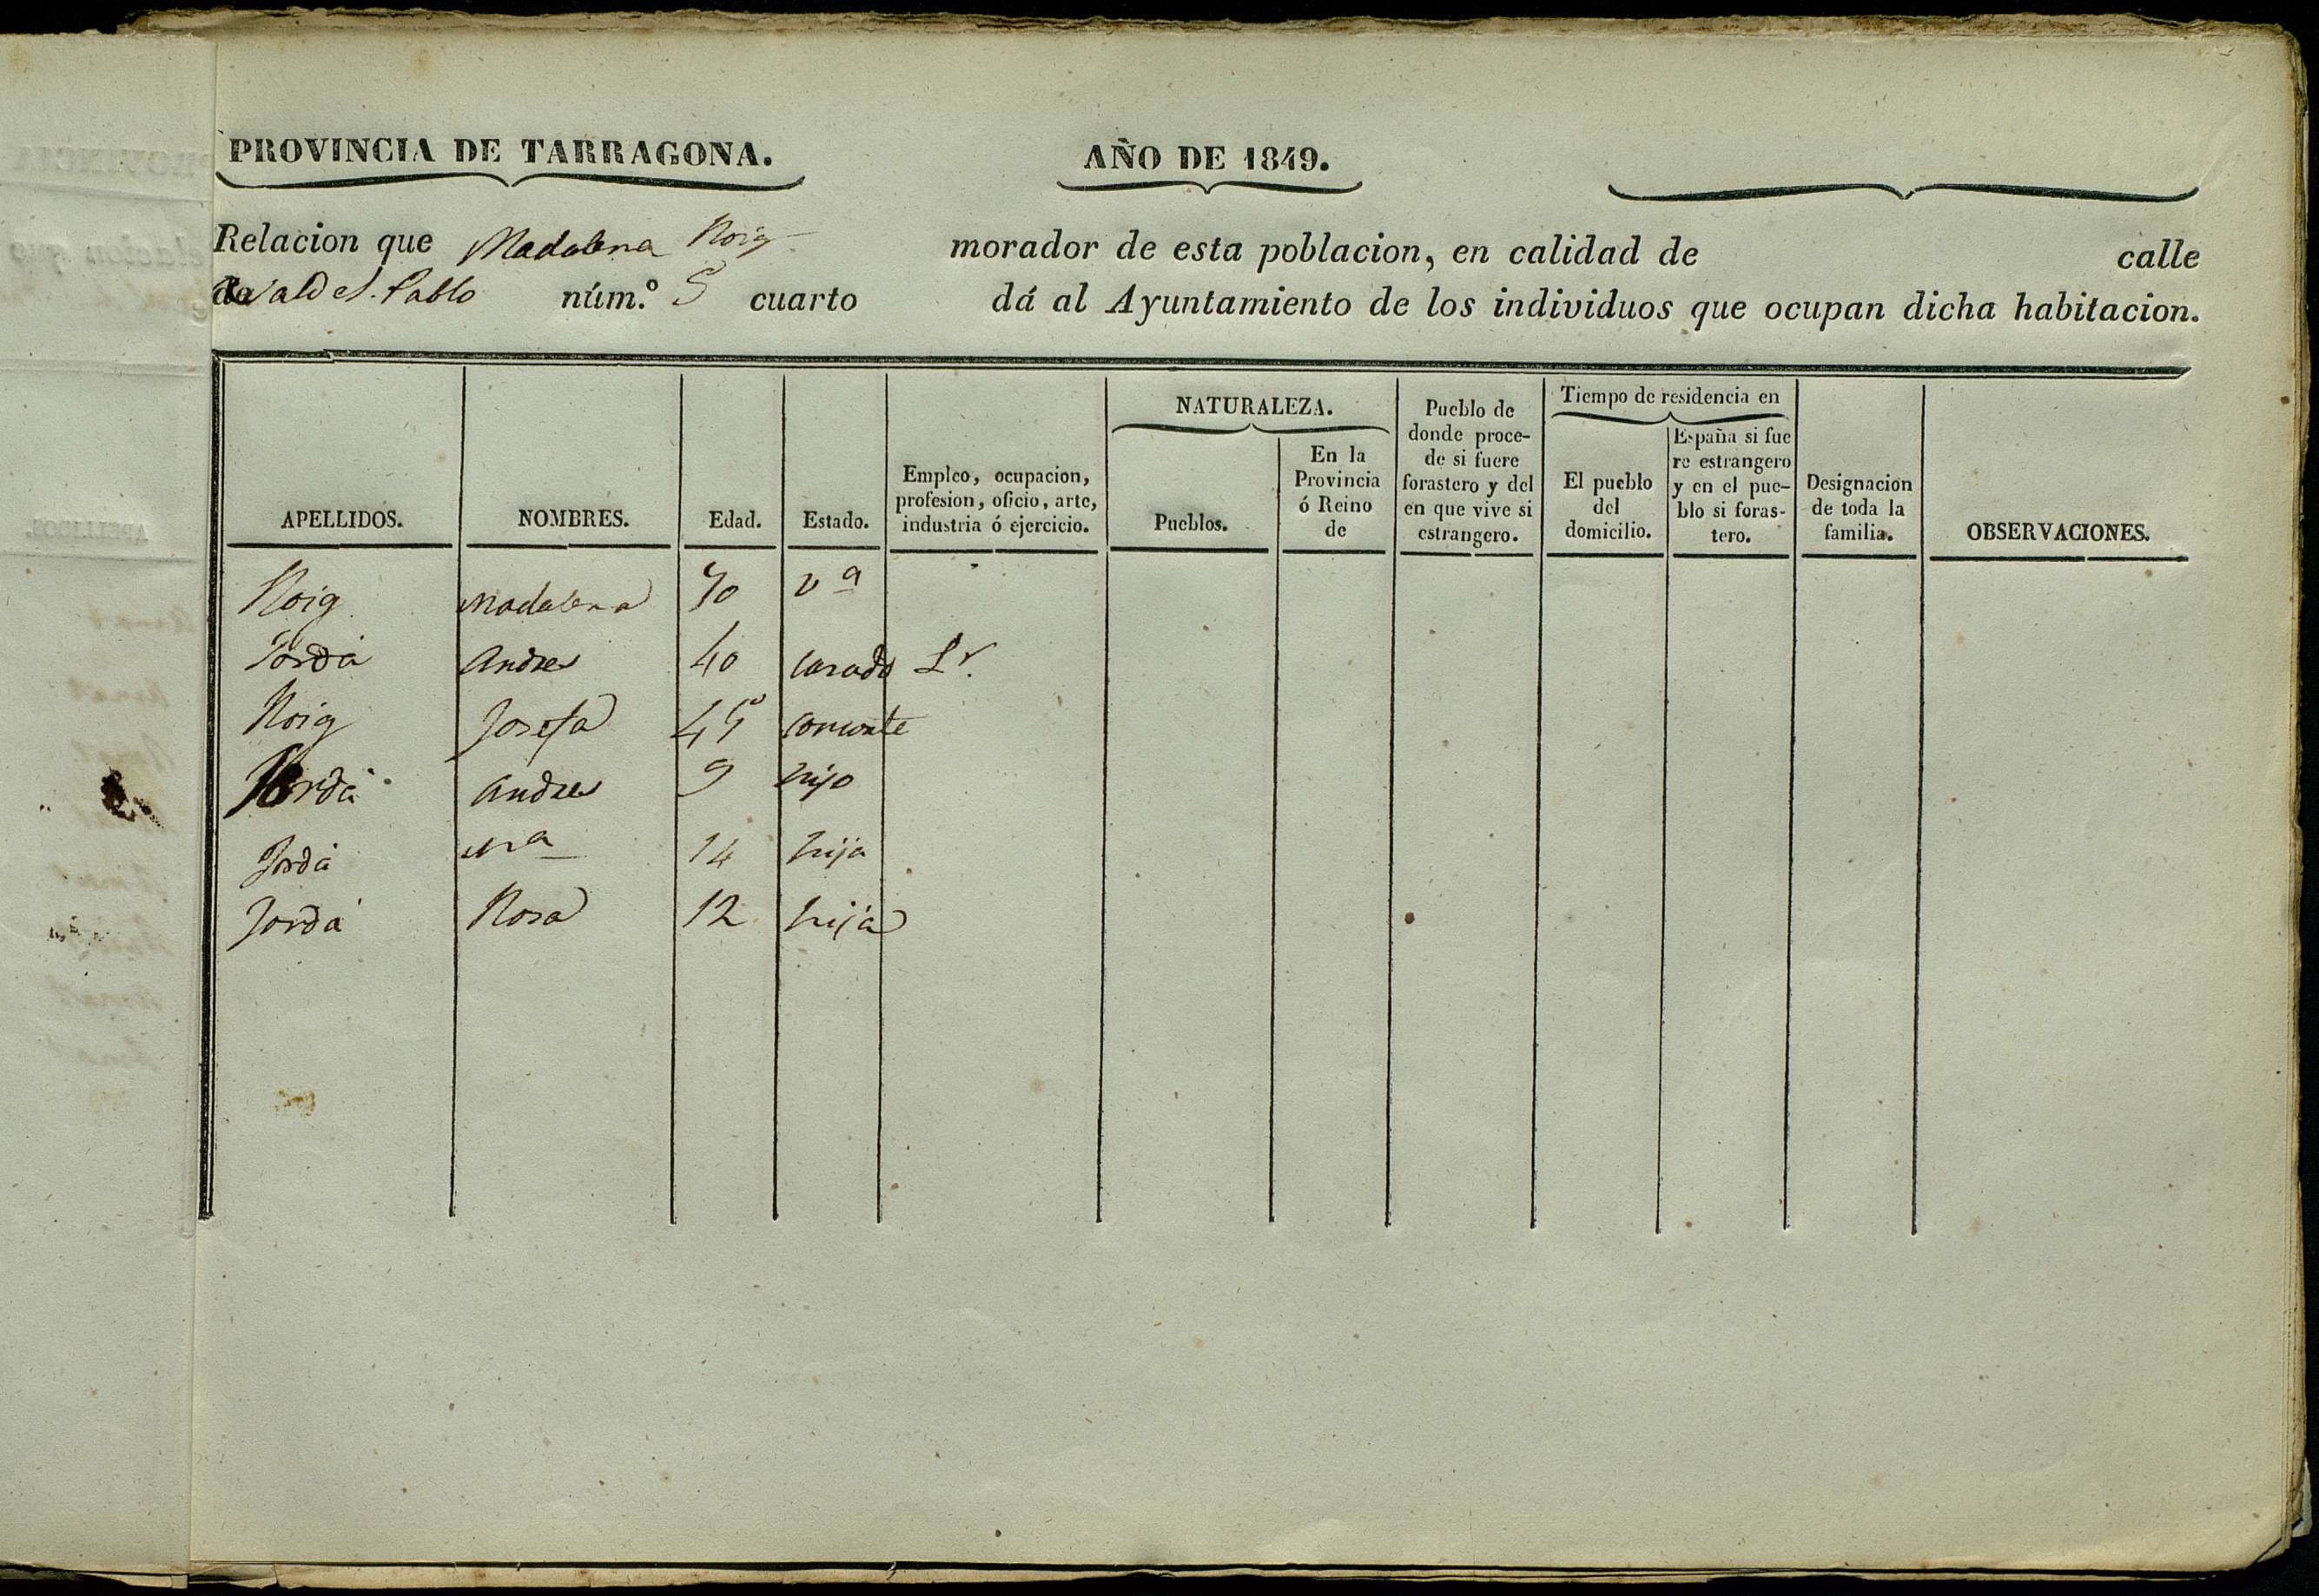 PROVINCIA DE TARRAGONA. AÑO DE 1849.
Relacion que Madalena Roig morador de esta poblacion, en calidad de calle
de Raval de S. Pablo núm.º 5 cuarto dá al Ayuntamiento de los individuos que ocupan dicha habitacion.
APELLIDOS. NOMBRES. Edad. Estado. Empleo, ocupacion, profesion, oficio, arte, industria ó ejercicio. NATURALEZA. Pueblos. En la Provincia ó Reino de Pueblo de donde procede si fuere forastero y del en que vive si estrangero. Tiempo de residencia en El pueblo del domicilio. España si fuere estrangero y en el pueblo si forastero. Designacion de toda la familia. OBSERVACIONES.
Roig Madalena 70 vª
Jordá Andres 40 casado Lr.
Roig Josefa 45 consorte
Jordá Andres 9 hijo
Jordá Mª 14 hija
Jordá Rosa 12 hija